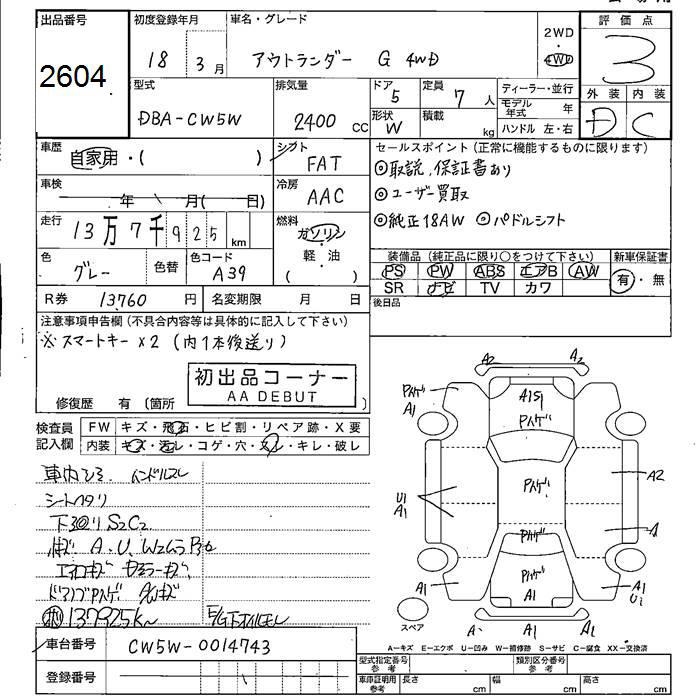 出品番号 初度登録年月 車名・グレード 評価点
2604 18 3月 アウトランダー G 4WD 2WD・4WD 3
型式 排気量 ドア 5 定員 7人 ディーラー・並行 外装 内装
DBA-CW5W 2400cc 形状 W 積載 kg モデル年式 年 D C
ハンドル 左・右
車歴 自家用・( ) シフト FAT セールスポイント(正常に機能するものに限ります)
◎取説、保証書あり
車検 年 月(日) 冷房 AAC ◎ユーザー買取
走行 13万7千925km 燃料 ガソリン・軽油 ( ) ◎純正18AW ◎パドルシフト
装備品(純正品に限り○をつけて下さい) 新車保証書
色 グレー 色替 色コード A39 PS PW ABS エアB AW 有・無
SR ナビ TV カワ
R券 13760円 名変期限 月 日 後日品
注意事項申告欄(不具合内容等は具体的に記入して下さい)
※スマートキー×2(内1本後送り)
初出品コーナー
AA DEBUT
修復歴 有(箇所 )
検査員記入欄 FW キズ・飛石・ヒビ割・リペア跡・X要
内装 キズ・汚レ・コゲ・穴・スレ・キレ・破レ
ハンドルスレ
シートヘタリ
下回りS2C2
A.U.W2
137925km E/G下オイルモレ
車台番号 CW5W-0014743
登録番号
A2 A2
A1 A1S1 A1
U1 A1 A2
A
A1 A1 A1 U1
スペア A A1
A-キズ E-エクボ U-凹み W-補修跡 S-サビ C-腐食 XX-交換済
型式指定番号 参考 類別区分番号 参考
車庫証明用 参考 長さ cm 幅 cm 高さ cm